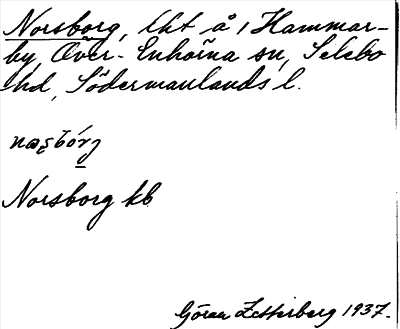 Norsborg, lht å 1 Hammar-
by, Över-Enhörna sn, Selebo
hd, Södermanlands l.
Norsborg kb
Göran Zetterberg 1937.